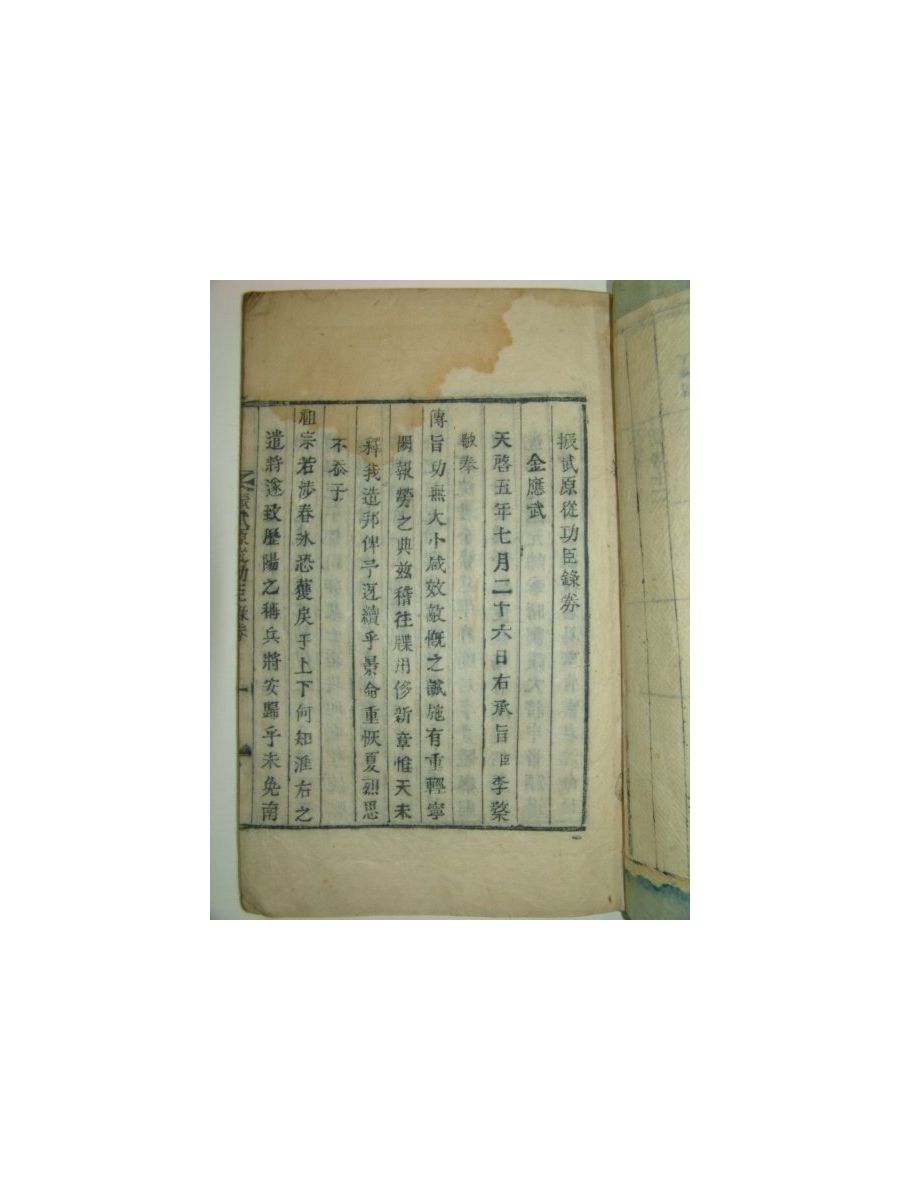 振武原從功臣錄券
金應武
天啓五年七月二十六日右承旨臣李蘩
敬奉
傳旨功無大小咸效敵慨之誠施有重輕寧
闕報勞之典玆稽往牒用侈新章惟天未
釋我造邦俾予迓續乎景命重恢夏烈思
不忝于
祖宗若涉春氷恐獲戾于上下何知淮右之
遣將遂致歷陽之稱兵將安歸乎未免南
振武原從功臣錄券
一